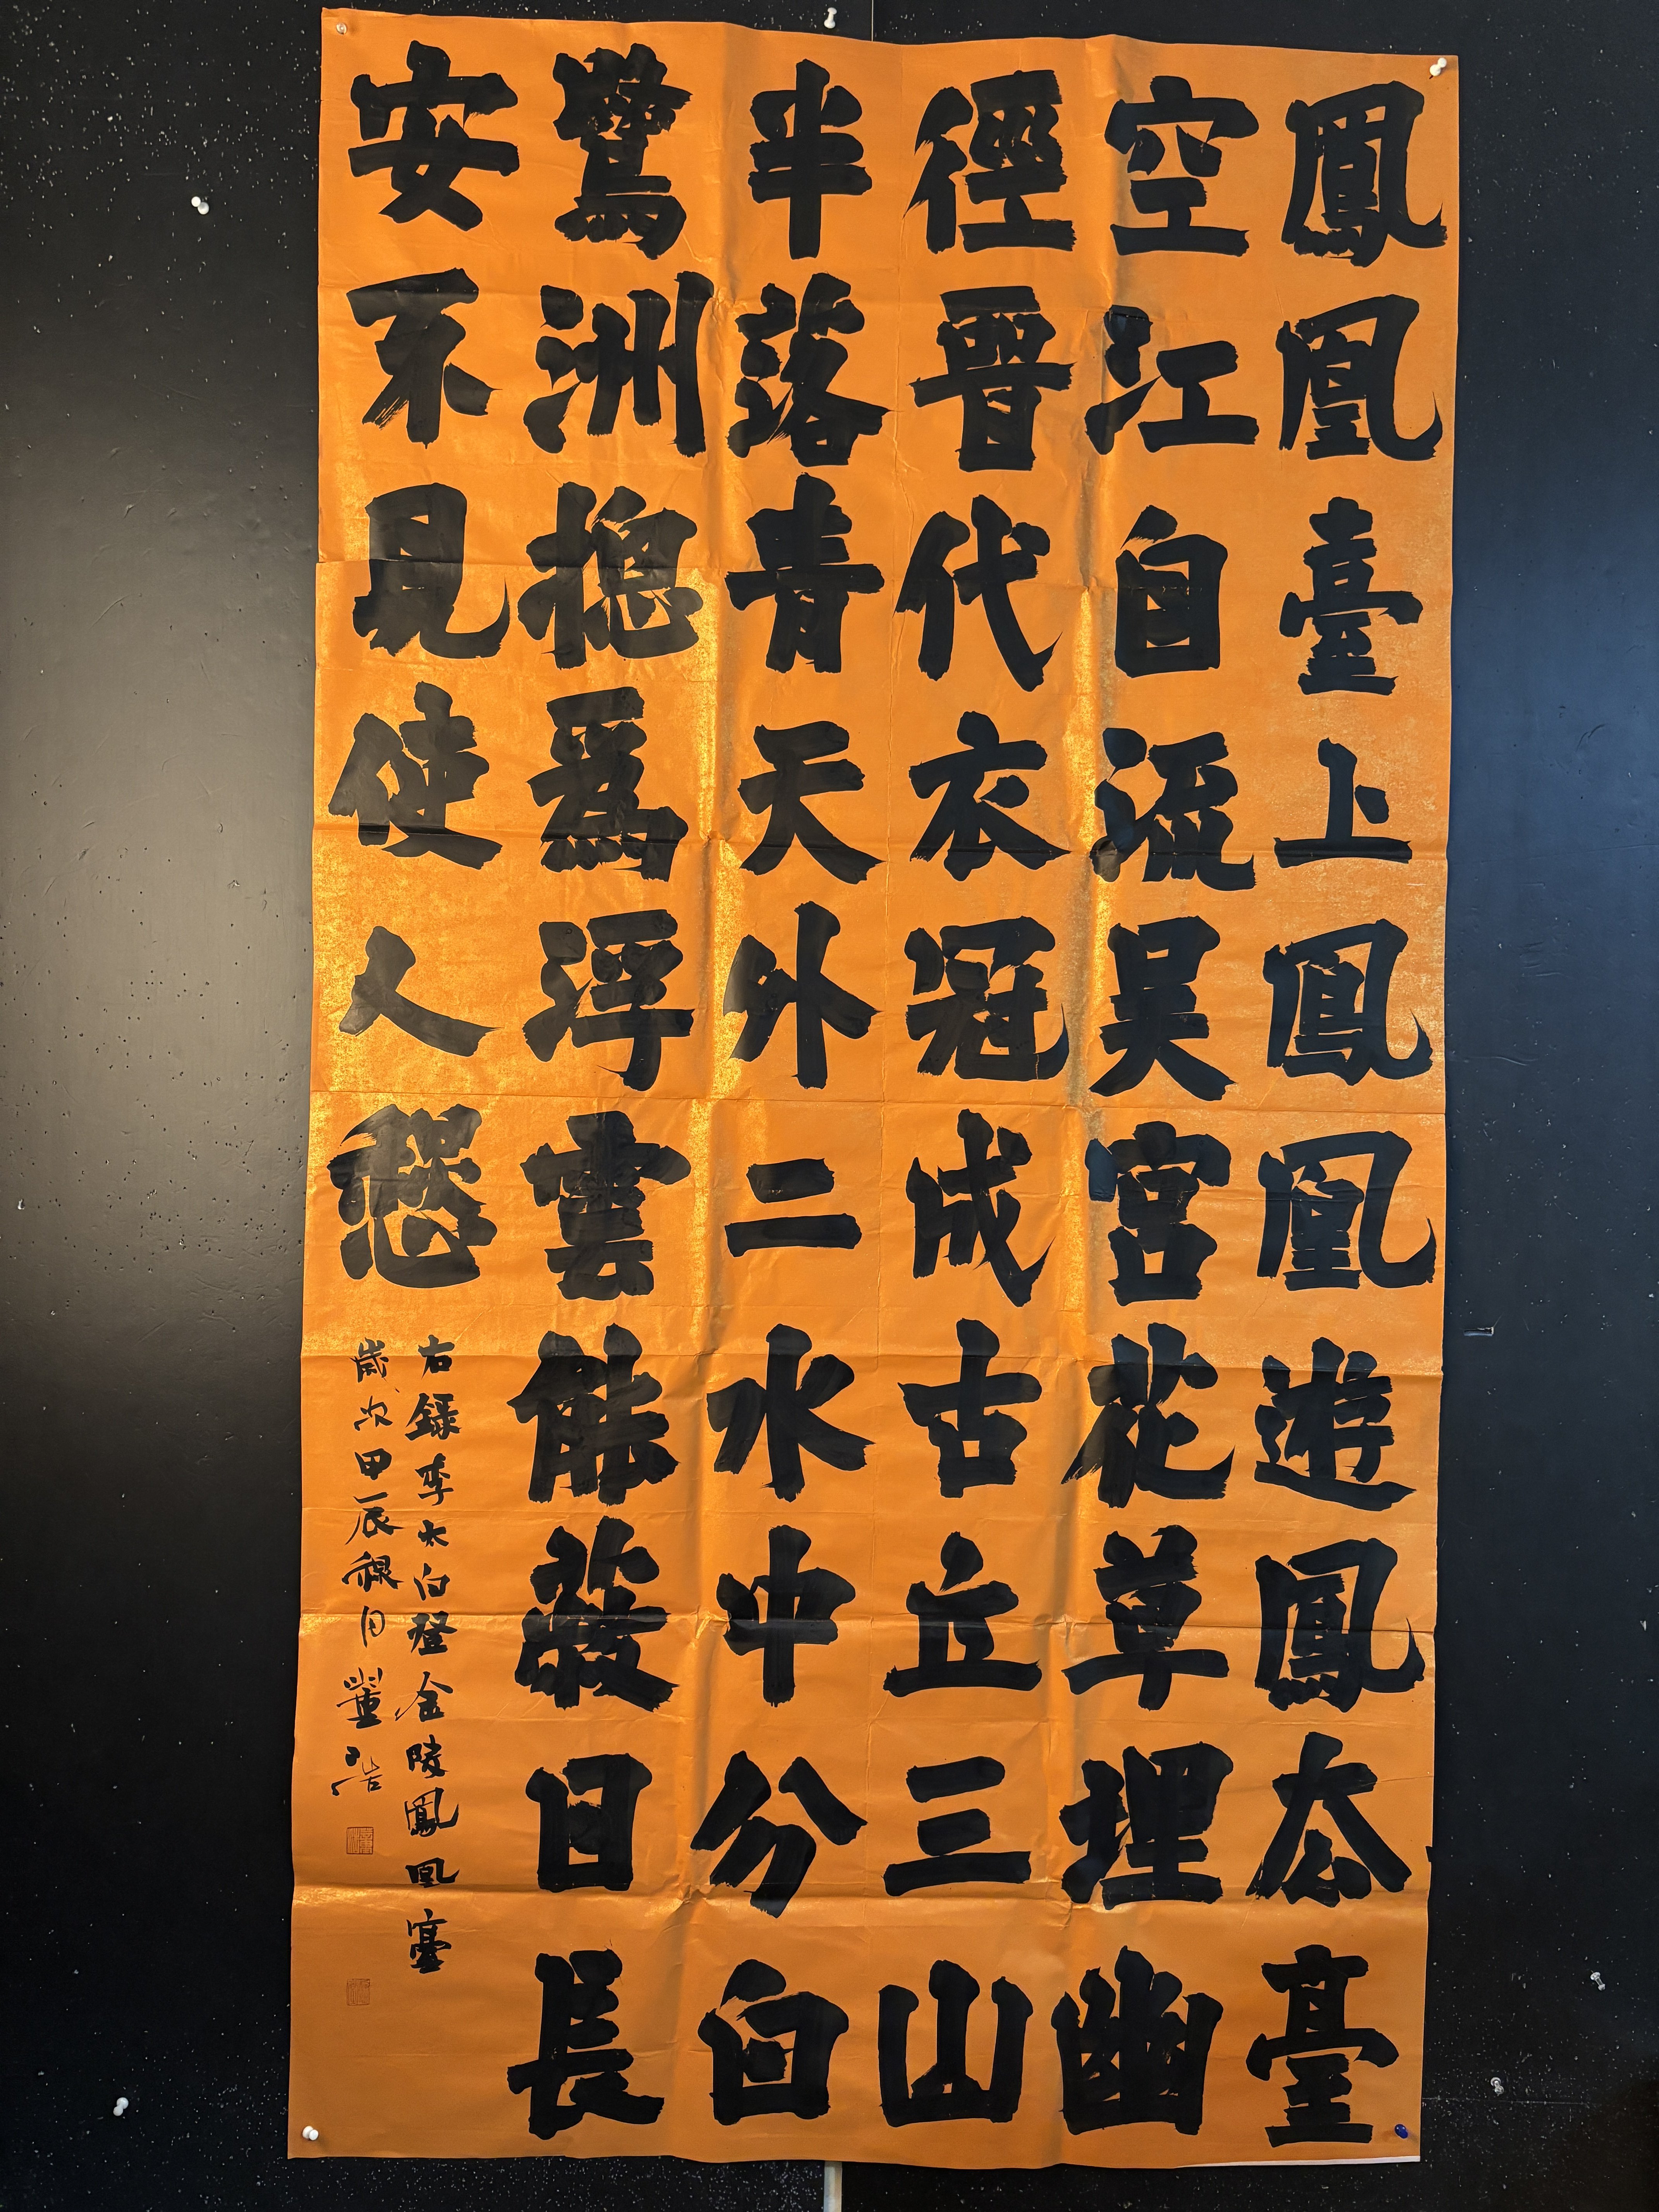 鳳凰臺上鳳凰遊鳳厺臺
空江自流吳宮花草埋幽
徑晉代衣冠成古丘三山
半落青天外二水中分白
鷺洲摠爲浮雲能蔽日長
安不見使人愁
右錄李太白登金陵鳳凰臺
歲次甲辰月董浩